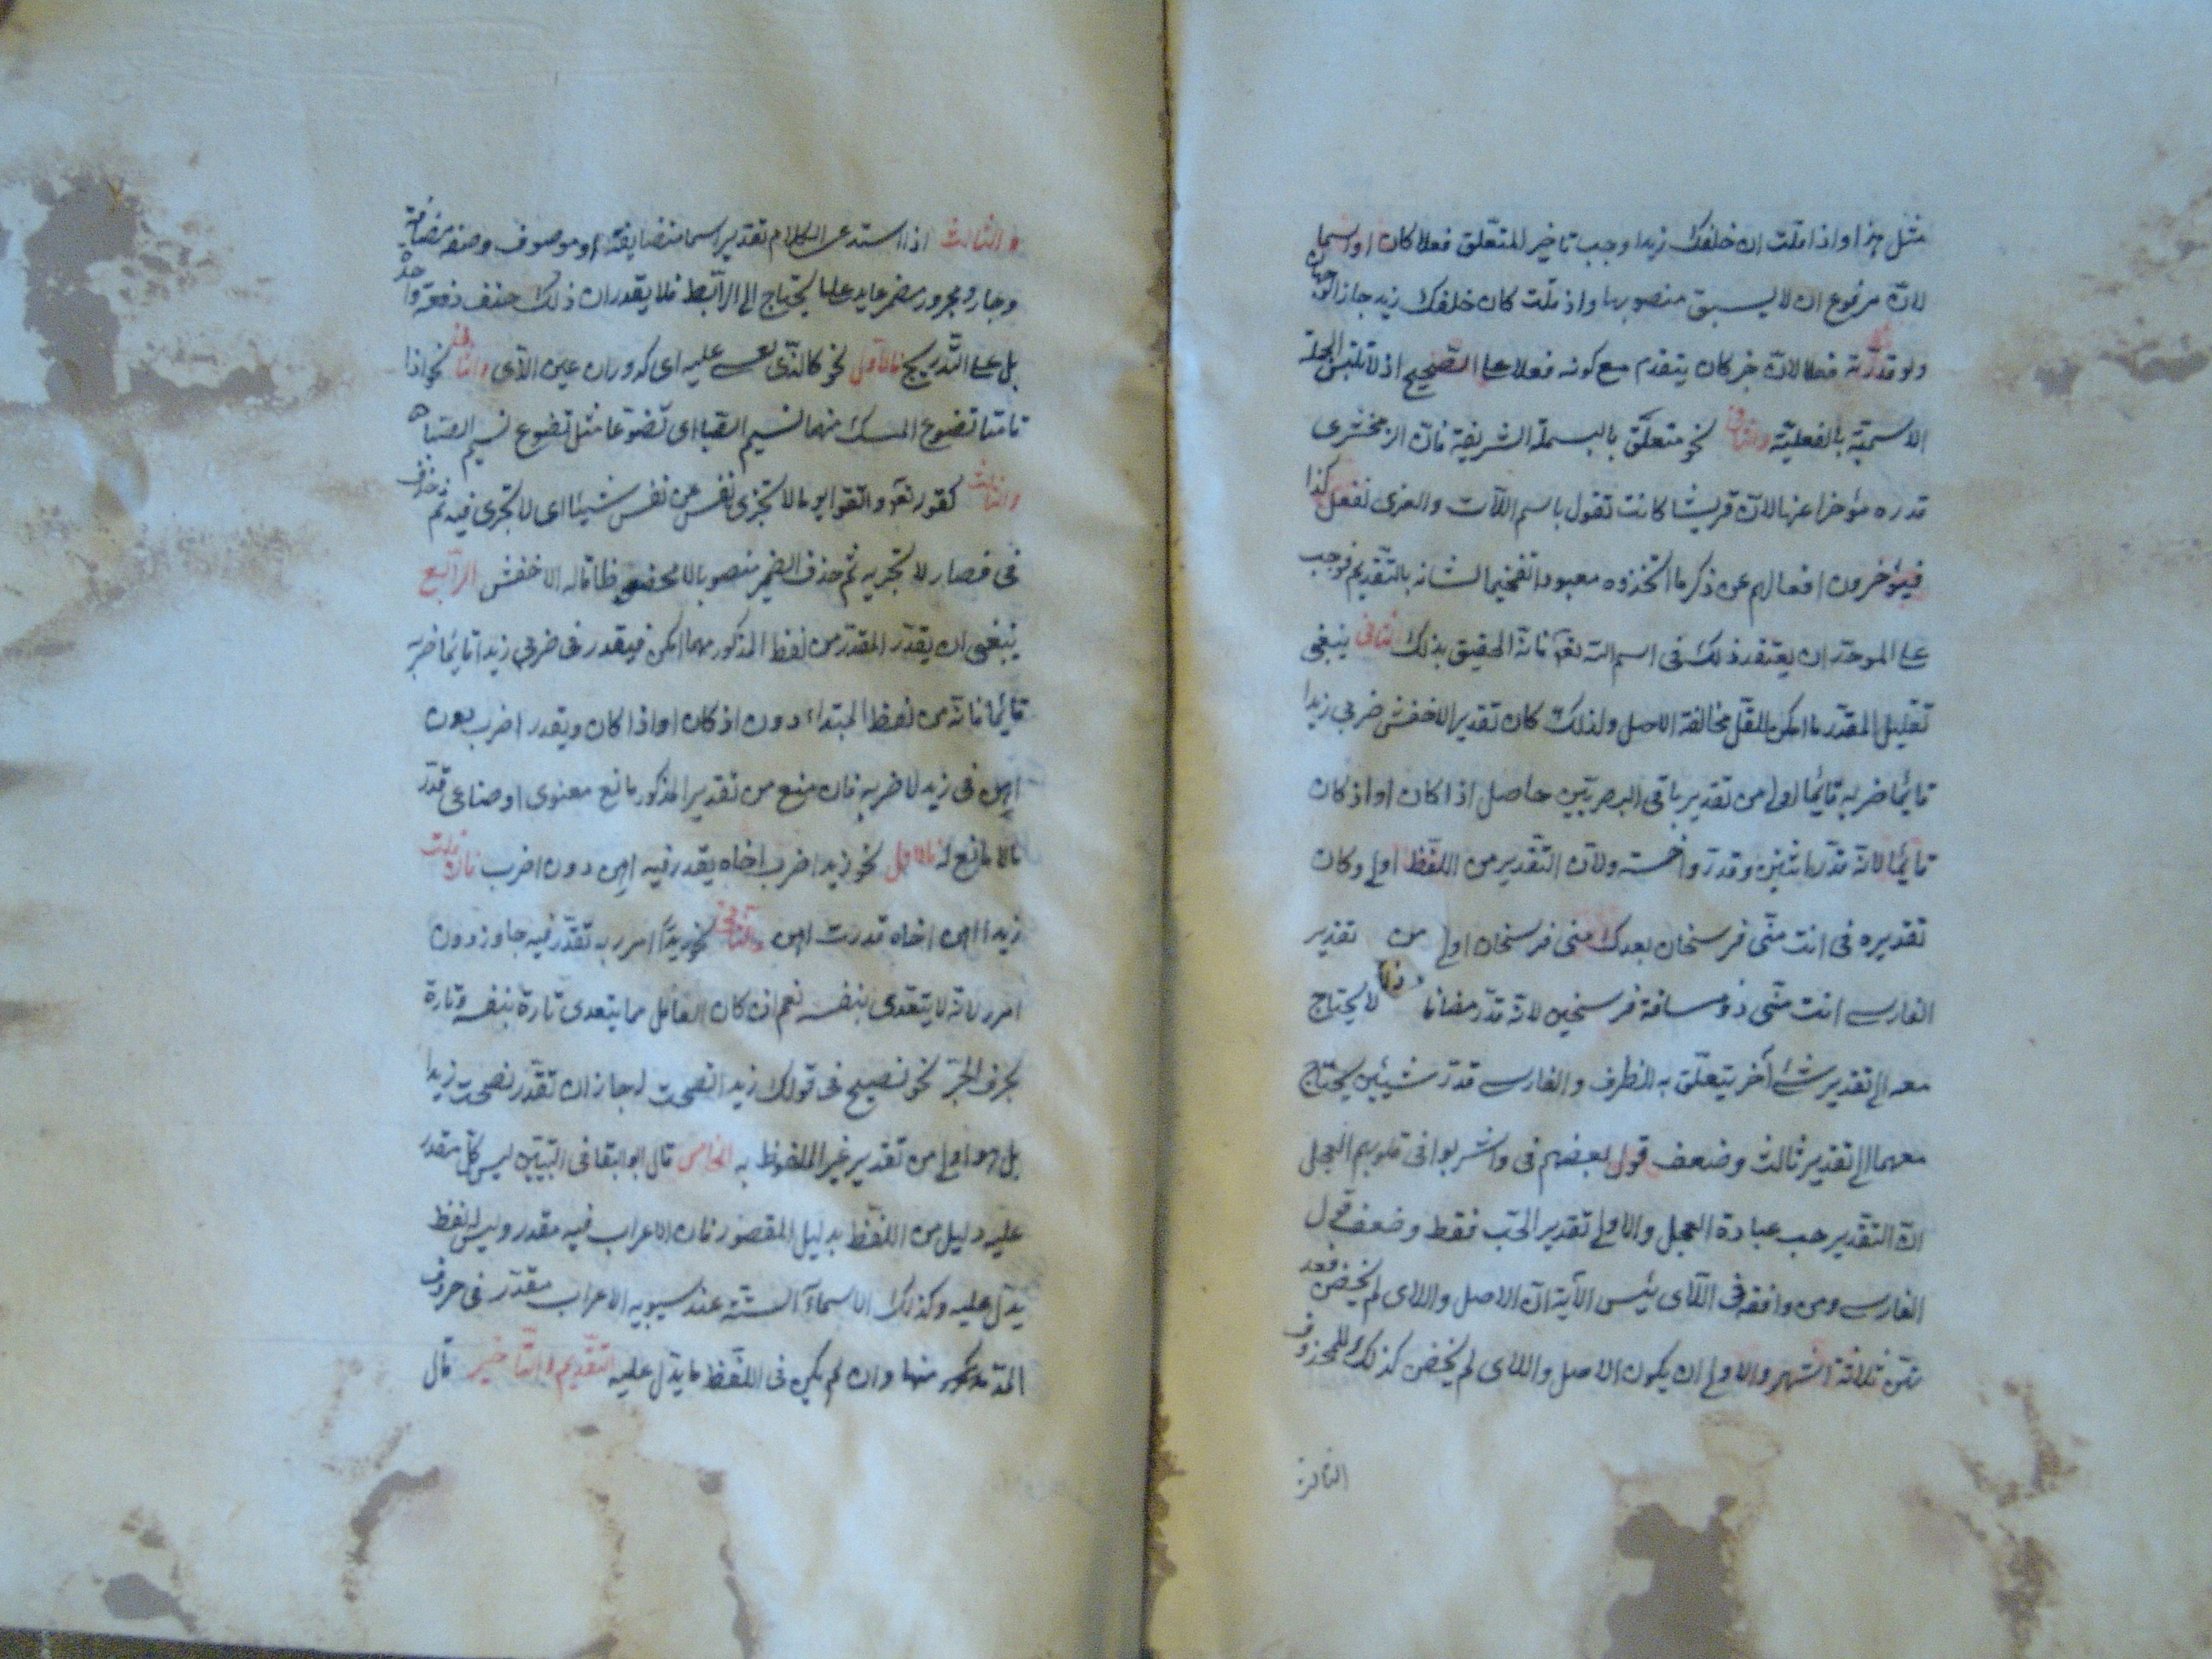 مثل هذا واذا قلت ان خلفك زيدا وجب تاخير المتعلق فعلا كان او اسما
لان مرفوع ان لا يسبق منصوبها واذ قلت كان خلفك زيد جاز الوجهان
ولو قدرته فعلا لان خبر كان يتقدم مع كونه فعلا على الصحيح اذ لا تلتبس الجملة
الاسمية بالفعلية والثانى نحو متعلق بالبسملة الشريفة فان الزمخشرى
قدره مؤخرا عنها لان قريشا كانت تقول باسم اللات والعزى نفعل كذا
فيؤخرون افعالهم عن ذكر ما اتخذوه معبودا تفخيما لشانه بالتقديم فوجب
على الموحد ان يعتقد ذلك فى اسم الله تعالى فانه الحقيق بذلك الثانى ينبغى
تقليل المقدر ما امكن لتقل مخالفة الاصل ولذلك كان تقدير الاخفش ضربى زيدا
قائما ضربه قائما اولى من تقدير باقى البصريين حاصل اذا كان او اذ كان
قائما لانه قدر اثنين وقدروا خمسة ولان التقدير من اللفظ اولى وكان
تقديره فى انت منى فرسخان بعدك منى فرسخان اولى من تقدير
الفارسى انت منى ذو مسافة فرسخين لانه قدر مضافا لا يحتاج
معه الى تقدير شئ آخر يتعلق به الظرف والفارسى قدر شيئين يحتاج
معهما الى تقدير ثالث وضعف قول بعضهم فى واشربوا فى قلوبهم العجل
ان التقدير حب عبادة العجل والاولى تقدير الحب فقط وضعف قول
الفارسى ومن وافقه فى اللآى يئسن الآية ان الاصل واللاى لم يحضن فعد
تهن ثلاثة اشهر والاولى ان يكون الاصل واللاى لم يحضن كذلك للمحذوف
الثالث
والثالث اذا استدعى الكلام تقدير اسما متضايفة او موصوف وصفة مضافة
وجار ومجرور مضمر عايد على ما يحتاج الى الرابط فلا يقدر ان ذلك حذف دفعة واحدة
بل على التدريج فالاول نحو كالذى يغشى عليه اى كدوران عين الذى والثانى نحو اذا
قامتا تضوع المسك منهما نسيم الصبا اى تضوعا مثل تضوع نسيم الصبا
والثالث كقوله تعالى واتقوا يوما لا تجزى نفس عن نفس شيئا اى لا تجزى فيه ثم حذف
فى فصار لا تجزيه ثم حذف الضمير منصوبا لا مخفوضا قاله الاخفش الرابع
ينبغى ان يقدر المقدر من لفظ المذكور مهما امكن فيقدر فى ضربى زيدا قائما ضربه
قائما فانه من لفظ المبتداء دون اذ كان او اذا كان ويقدر اضرب دون
اهن فى زيدا ضربه فان منع من تقدير المذكور مانع معنوى او صناعى قدر
ما لا مانع له فالاول نحو زيدا اضرب اخاه يقدر فيه اهن دون اضرب فان قلت
زيدا اهن اخاه قدرت اهن والثانى نحو زيدًا امرر به تقدر فيه جاوز دون
امرر لانه لا يتعدى بنفسه نعم ان كان العامل مما يتعدى تارة بنفسه وتارة
بحرف الجر نحو نصح فى قولك زيدا نصحت له جاز ان تقدر نصحت زيدا
بل هو اولى من تقدير غير الملفوظ به الخامس قال ابو البقا فى التبيين ليس كل مقدر
عليه دليل من اللفظ بدليل المقصور فان الاعراب فيه مقدر وليس له لفظ
يدل عليه وكذلك الاسماء الستة عند سيبويه الاعراب مقدر فى حروف
المد منها وان لم يكن فى اللفظ ما يدل عليه التقديم والتاخير قال